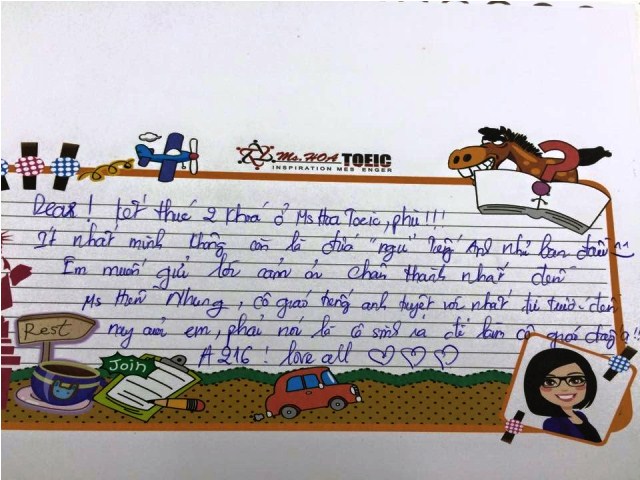 Ms. HOA TOEIC
INSPIRATION MES ENGER
Dear! kết thúc 2 khoá ở Ms Hoa Toeic, phù!!!
Ít nhất mình không còn là đứa "ngu" Tiếng Anh như ban đầu ^^
Em muốn gửi lời cảm ơn chân thành nhất đến
Ms Hiền Nhung, cô giáo tiếng anh tuyệt vời nhất từ trước đến
nay của em, phải nói là cô sinh ra để làm cô giáo !!
A216! love all ♡♡♡
Rest
Join